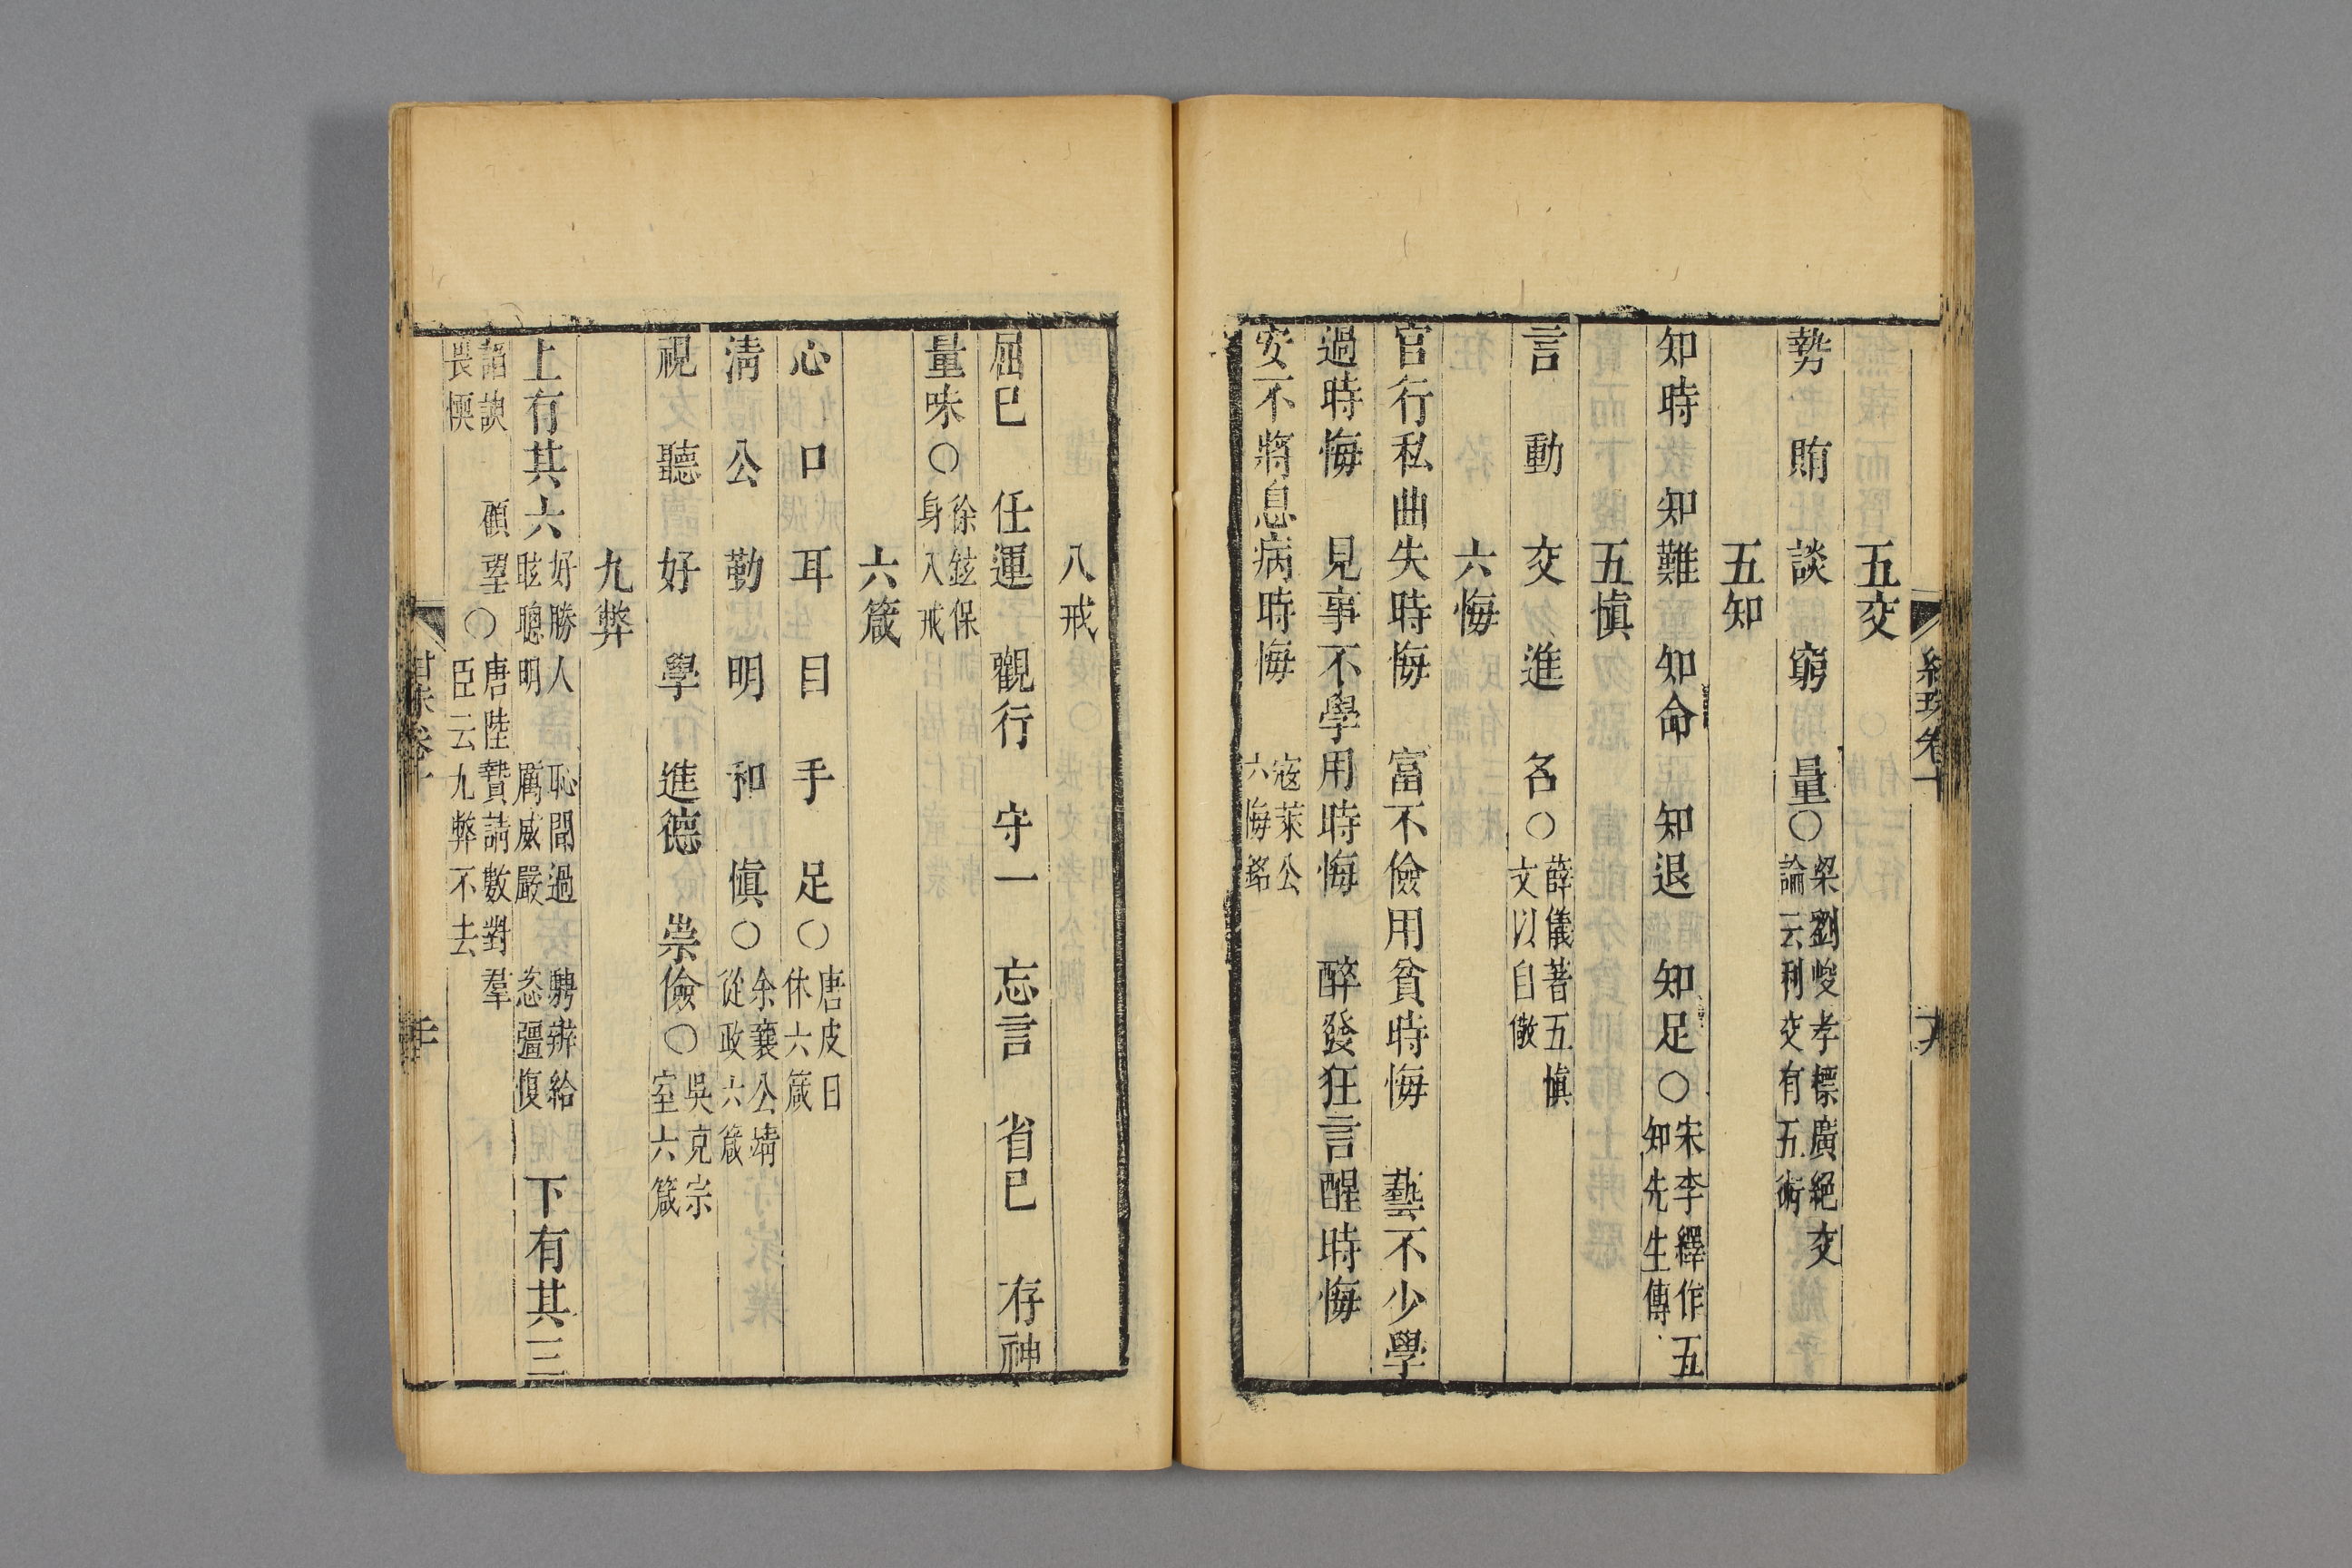 五交
勢 賄 談 窮 量○梁劉峻孝標廣絕交
論云利交有五術
五知
知時 知難 知命 知退 知足○宋李繹作五
知先生傳
五愼
言 動 交 進 名○薛儀著五愼
文以自儆
六悔
官行私曲失時悔 富不儉用貧時悔 藝不少學
過時悔 見事不學用時悔 醉發狂言醒時悔
安不將息病時悔 寇萊公
六悔銘
八戒
屈已 任運 觀行 守一 忘言 省已 存神
量味○徐鉉保
身八戒
六箴
心 口 耳 目 手 足○唐皮日
休六箴
淸 公 勤 明 和 愼○余襄公靖
從政六箴
視 聽 好 學 進德 崇儉○吳克宗
室六箴
九弊
上有其六 好勝人 恥聞過 騁辨給
眩聰明 厲威嚴 恣彊愎 下有其三
諂諛 顧望○唐陸贄請數對羣
畏愞 臣云九弊不去